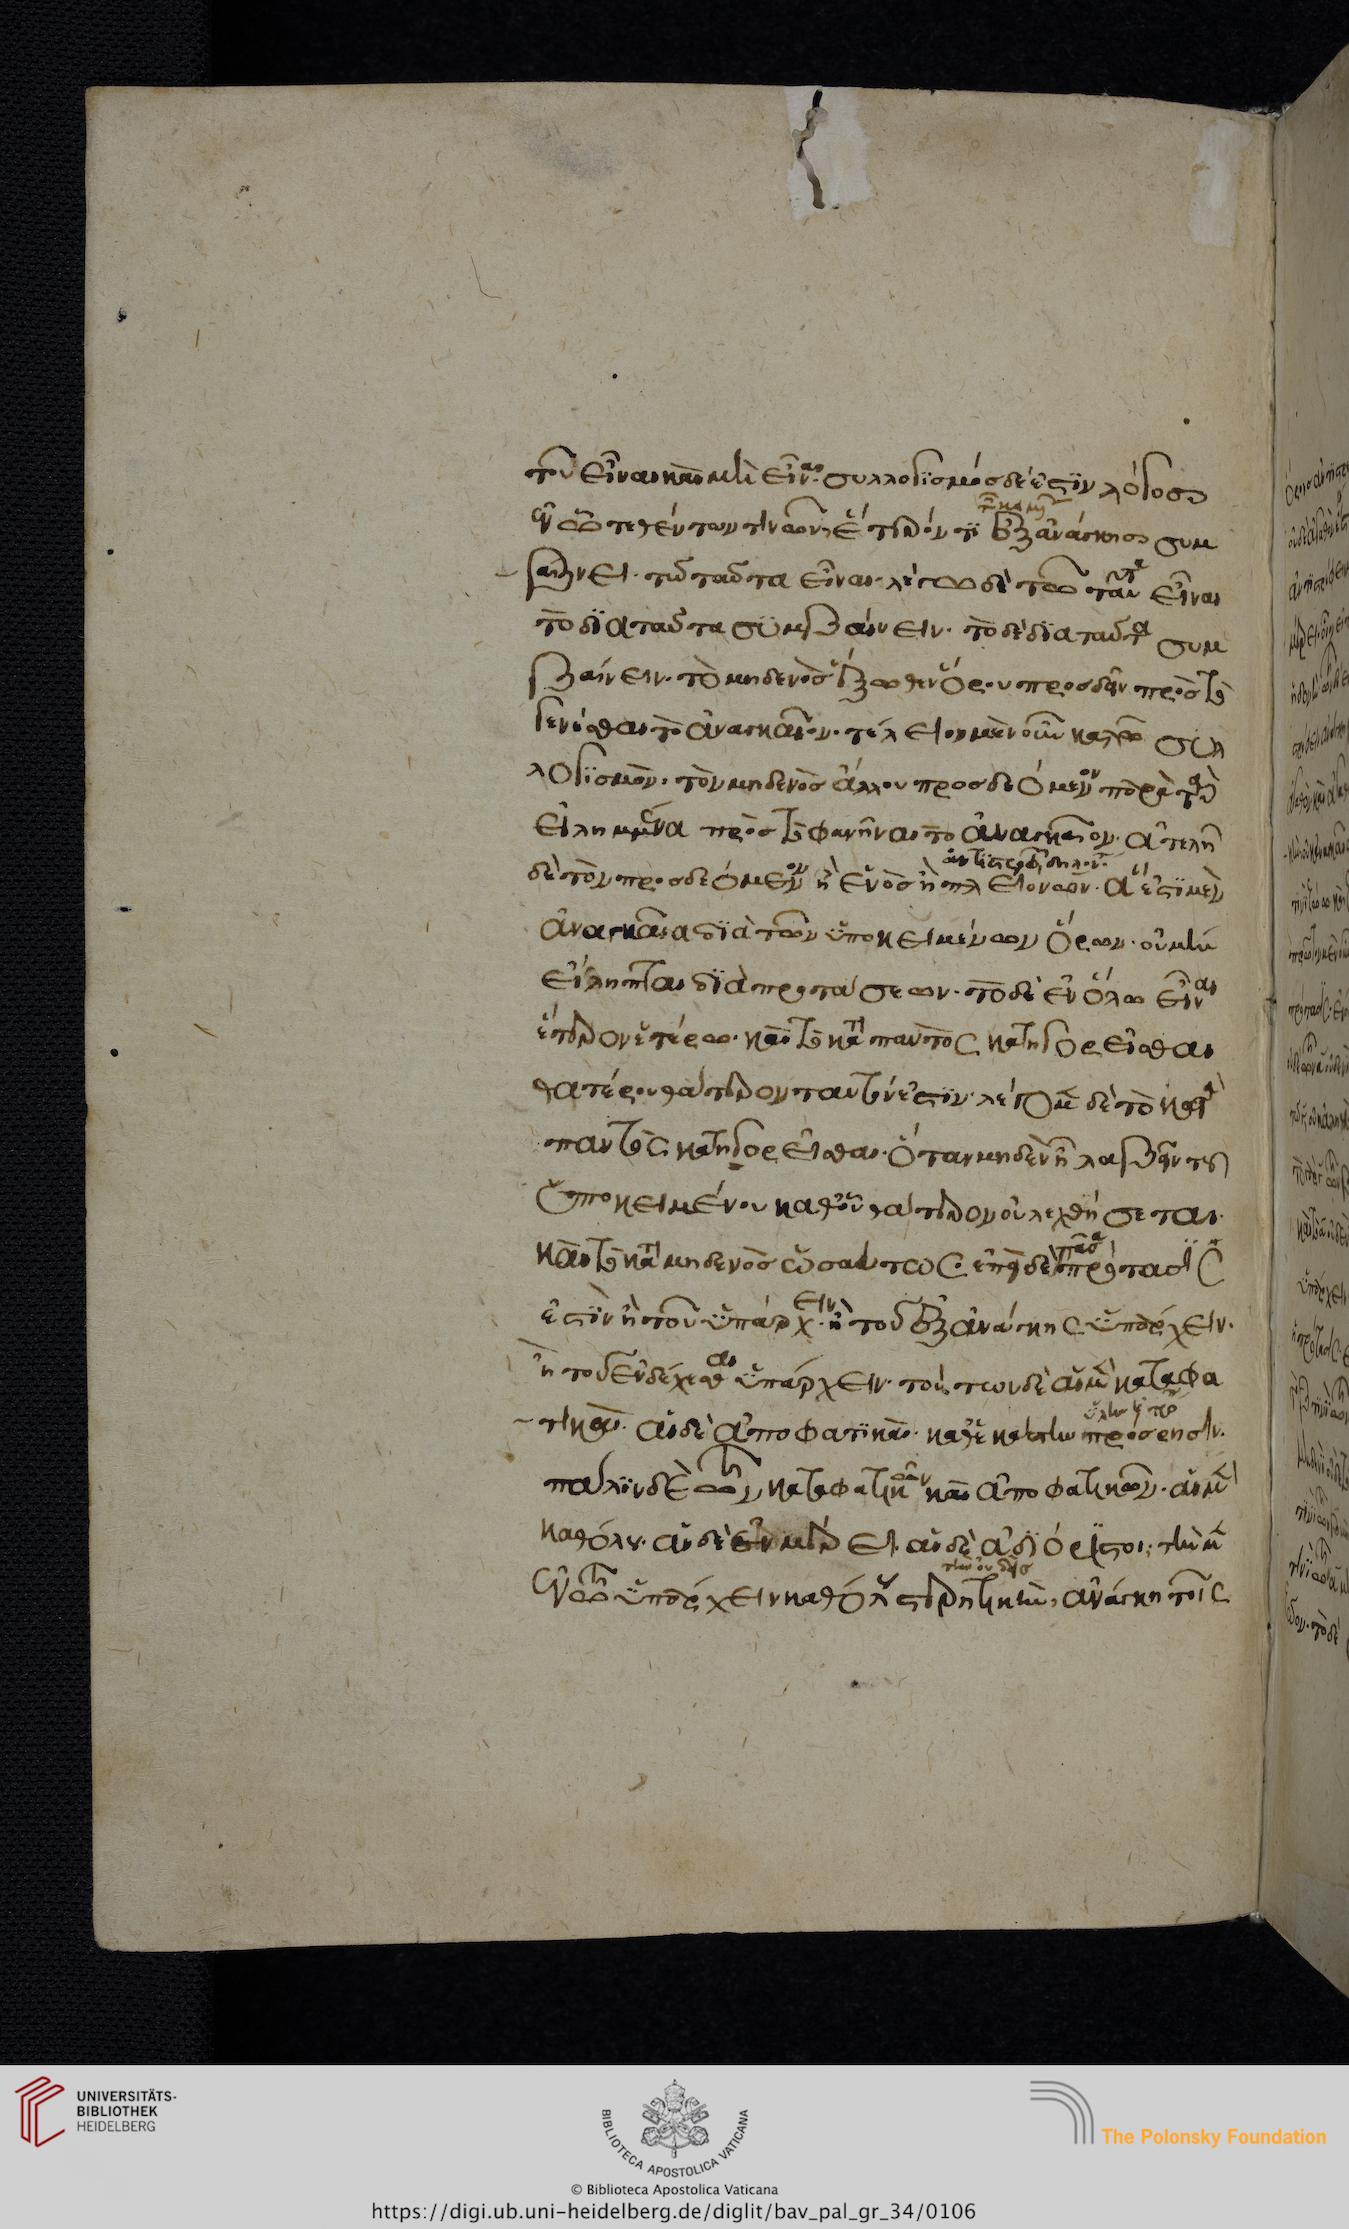 τοῦ εἶναι καὶ μὴ εἶναι. συλλογϊσμὸς δέ ἐστϊν λόγος
ἐν ὧ τεθέντων τινῶν, ἕτερόν τϊ ἐξ ἀνάγκης συμ
βαίνει τῶ ταῦτα εἶναι. λέγω δὲ τῶ ταῦτα εἶναι
τὸ δϊὰ ταῦτα συμβαίνειν. τὸ δὲ δϊὰ ταῦτα συμ
βαίνειν. τὸ μηδενὸς ἔξωθεν ὅρου προσδεῖν πρὸς τὸ
γενέσθαι τὸ ἀναγκαῖον. τέλειον μὲν οὖν καλῶ συλ
λογϊσμὸν. τὸν μηδενὸς ἄλλου προσδεόμενον παρὰ τὰ
εἰλημμένα πρὸς τὸ φανῆναι τὸ ἀναγκαῖον. ἀτελῆ
δὲ τὸν προσδεόμενον ἢ ἑνὸς ἢ πλειόνων. ἃ ἔστϊ μὲν
ἀναγκαῖα δϊὰ τῶν ὑποκειμένων ὅρων. οὐ μὴν
εἴληπται δϊὰ προτάσεων. τὸ δὲ ἐν ὅλω εἶναι
ἕτερον ἑτέρω. καὶ τὸ κατὰ παντὸς κατηγορεῖσθαι
θατέρου θάτερον ταυτόν ἐστϊν. λέγομεν δὲ τὸ κατὰ
παντὸς κατηγορεῖσθαι. ὅταν μηδὲν ἦ λαβεῖν τοῦ
ὑποκειμένου καθ' οὗ θάτερον οὐ λεχθήσεται.
καὶ τὸ κατὰ μηδενὸς ὡσαύτως. ἐπεὶ δὲ πᾶσα πρότασϊς
ἐστϊν ἢ τοῦ ὑπάρχειν. ἢ τοῦ ἐξ ἀνάγκης ὑπάρχειν.
ἢ τοῦ ἐνδέχεσθαι ὑπάρχειν. τούτων δὲ αἱ μὲν καταφα
τικαὶ. αἱ δὲ ἀποφατϊκαὶ. καθ' ἑκάστην πρόσρησιν.
πάλϊν δὲ τῶν καταφατικῶν καὶ ἀποφατικῶν. αἱ μὲν
καθόλου. αἱ δὲ ἐν μέρει. αἱ δὲ ἀδϊόρϊστοι. τὴν μὲν
ἐν τῶ ὑπάρχειν καθόλου στερητικὴν, ἀνάγκη τοῖς
UNIVERSITÄTS-
BIBLIOTHEK
HEIDELBERG
BIBLIOTECA APOSTOLICA VATICANA
The Polonsky Foundation
© Biblioteca Apostolica Vaticana
https://digi.ub.uni-heidelberg.de/diglit/bav_pal_gr_34/0106